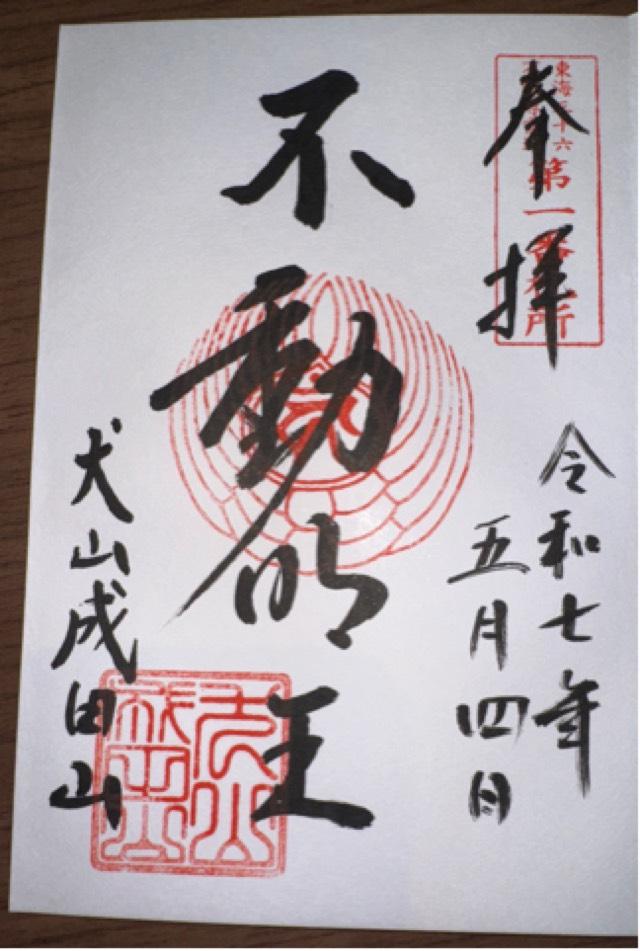 奉拝
東海三十六
第一番札所
令和七年
五月四日
不動明王
犬山成田山
犬山
成田山